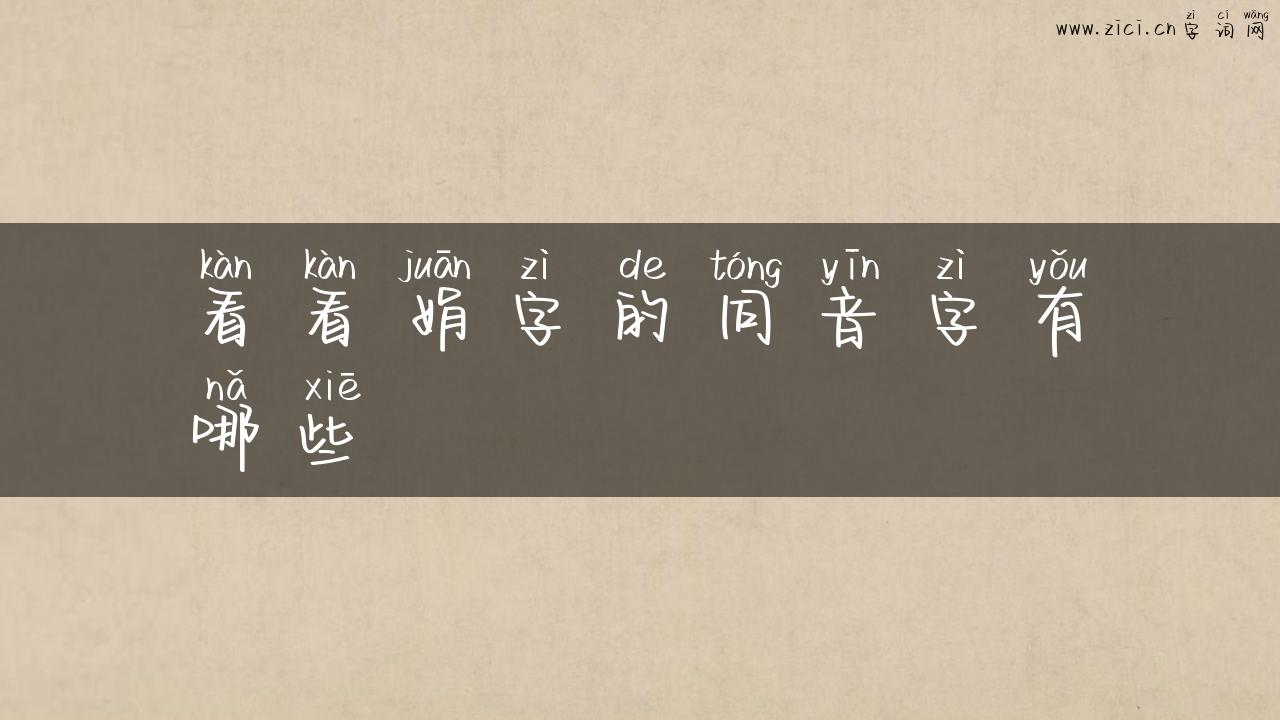 zì cí wǎng
www.zici.cn 字词网
kàn kàn juān zì de tóng yīn zì yǒu
看看娟字的同音字有
nǎ xiē
哪些